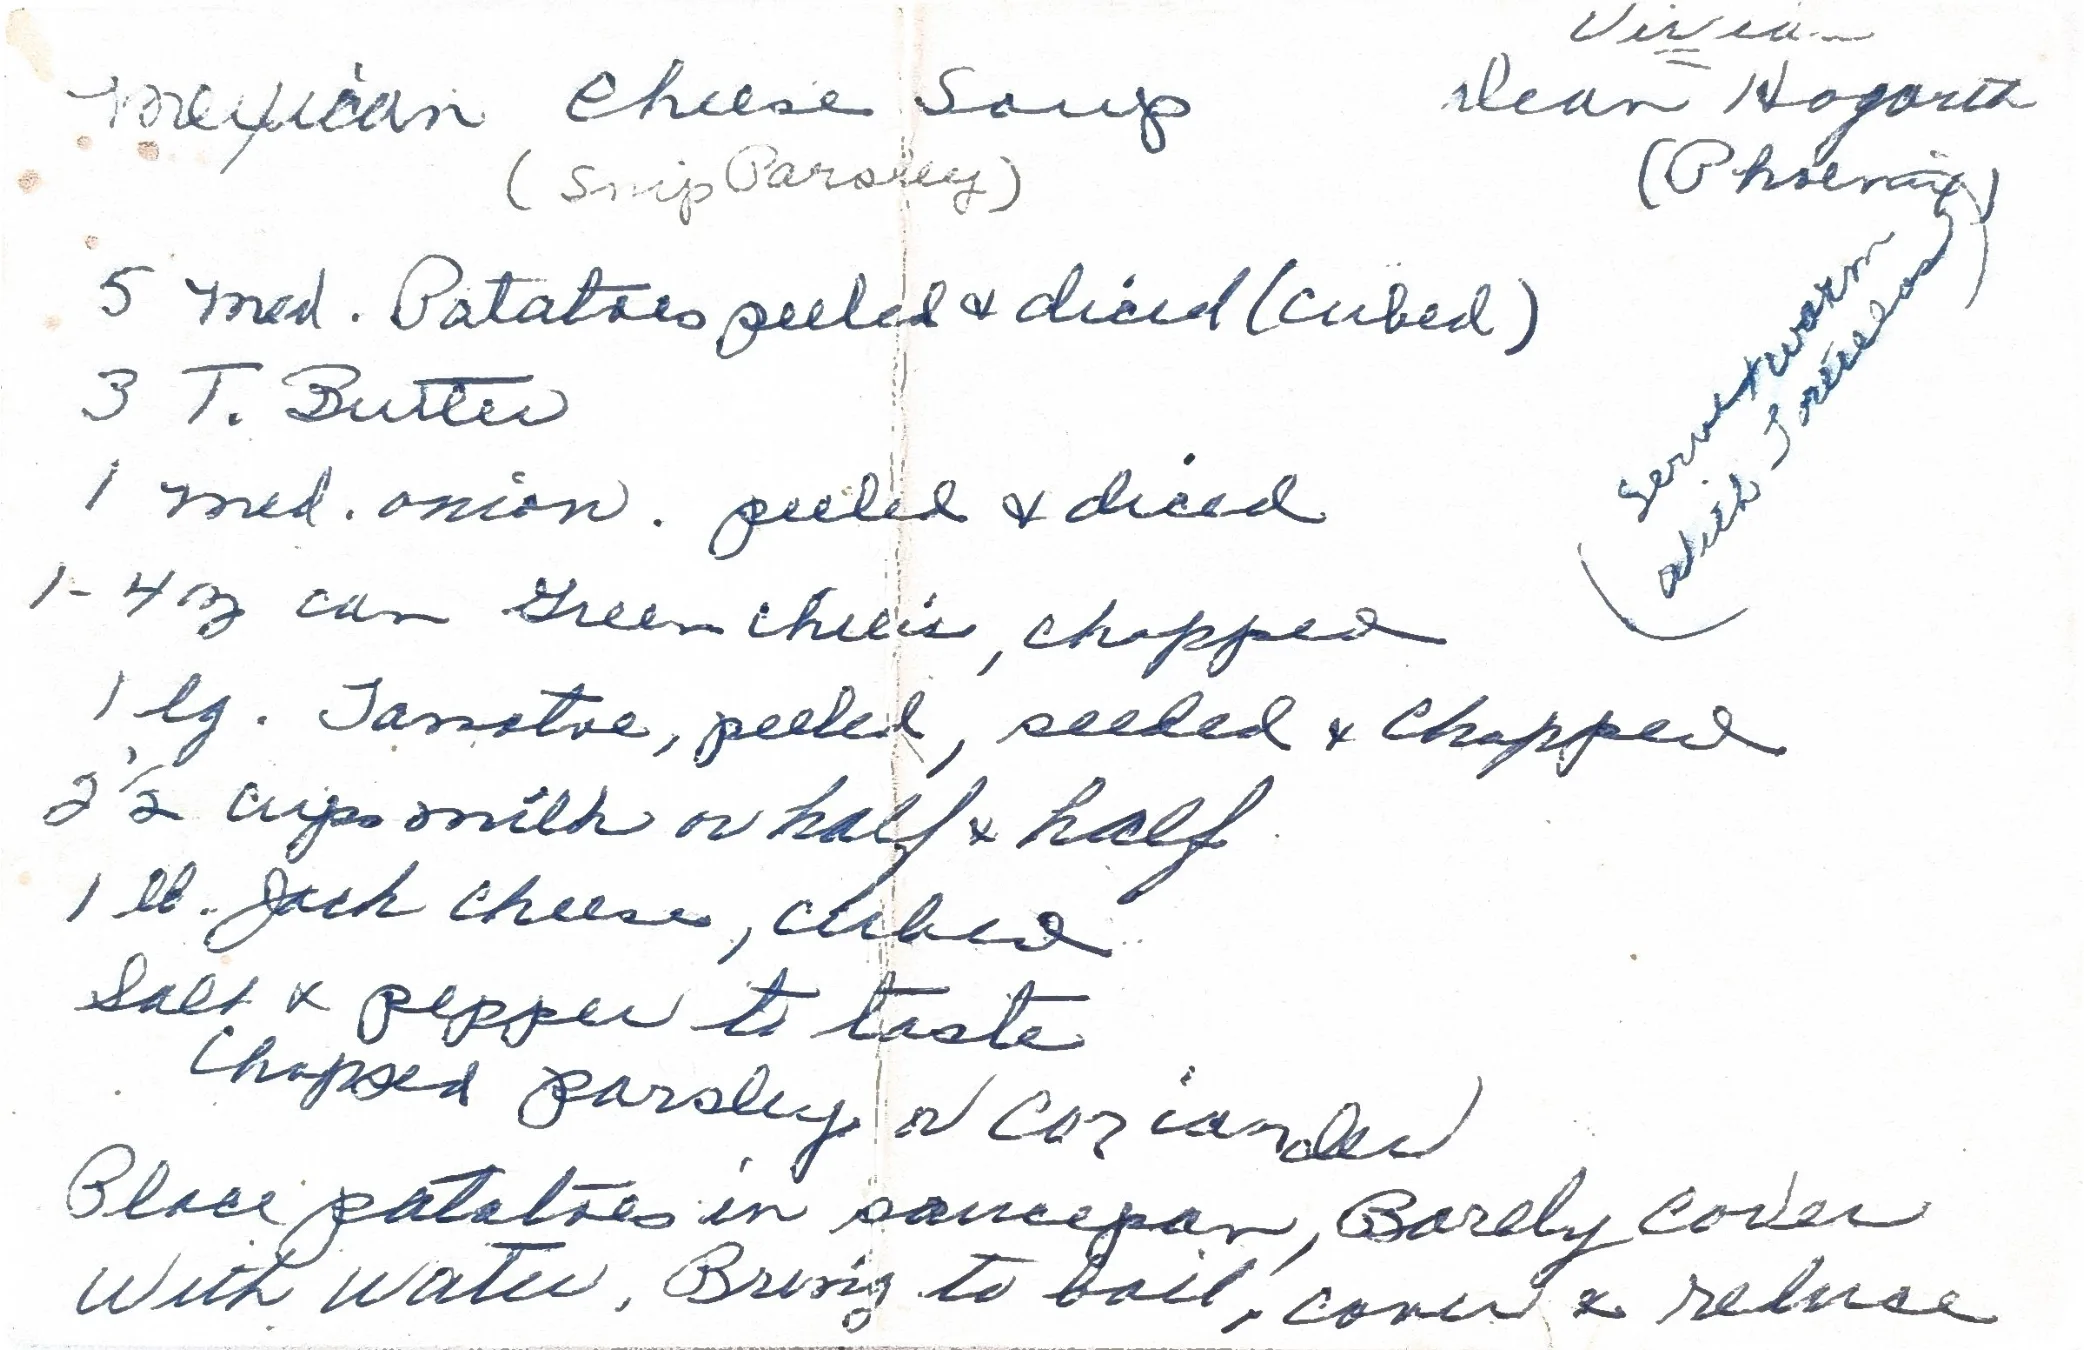 Vivian
Mexican Cheese Soup
Dean Hogarth
(Snip Parsley)
(Phoenix)
5 med. Potatoes peeled & diced (cubed)
3 T. Butter
1 med. onion. peeled & diced
1-4 oz can Green chilis, chopped
1 lg. Tomatoe, peeled, seeded & chopped
2 1/2 cups milk or half & half
1 lb. Jack cheese, cubed
Salt & pepper to taste
Chopped parsley or Coriander
Place potatoes in saucepan, Barely cover
with water. Bring to boil, cover & reduce
(Serve warm
with Tortillas)